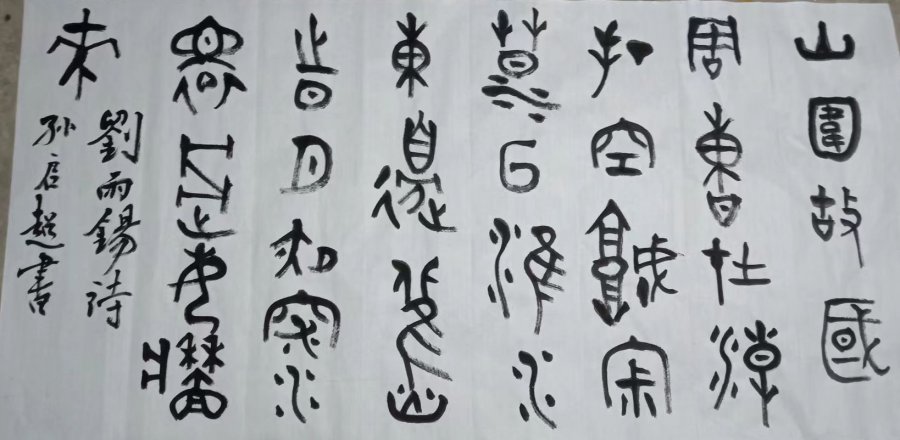 山圍故國
周曹在潮
打空城寂
莫回淮水
東邊舊
旹月夜深
還過女牆
來
劉禹錫詩
孙超書